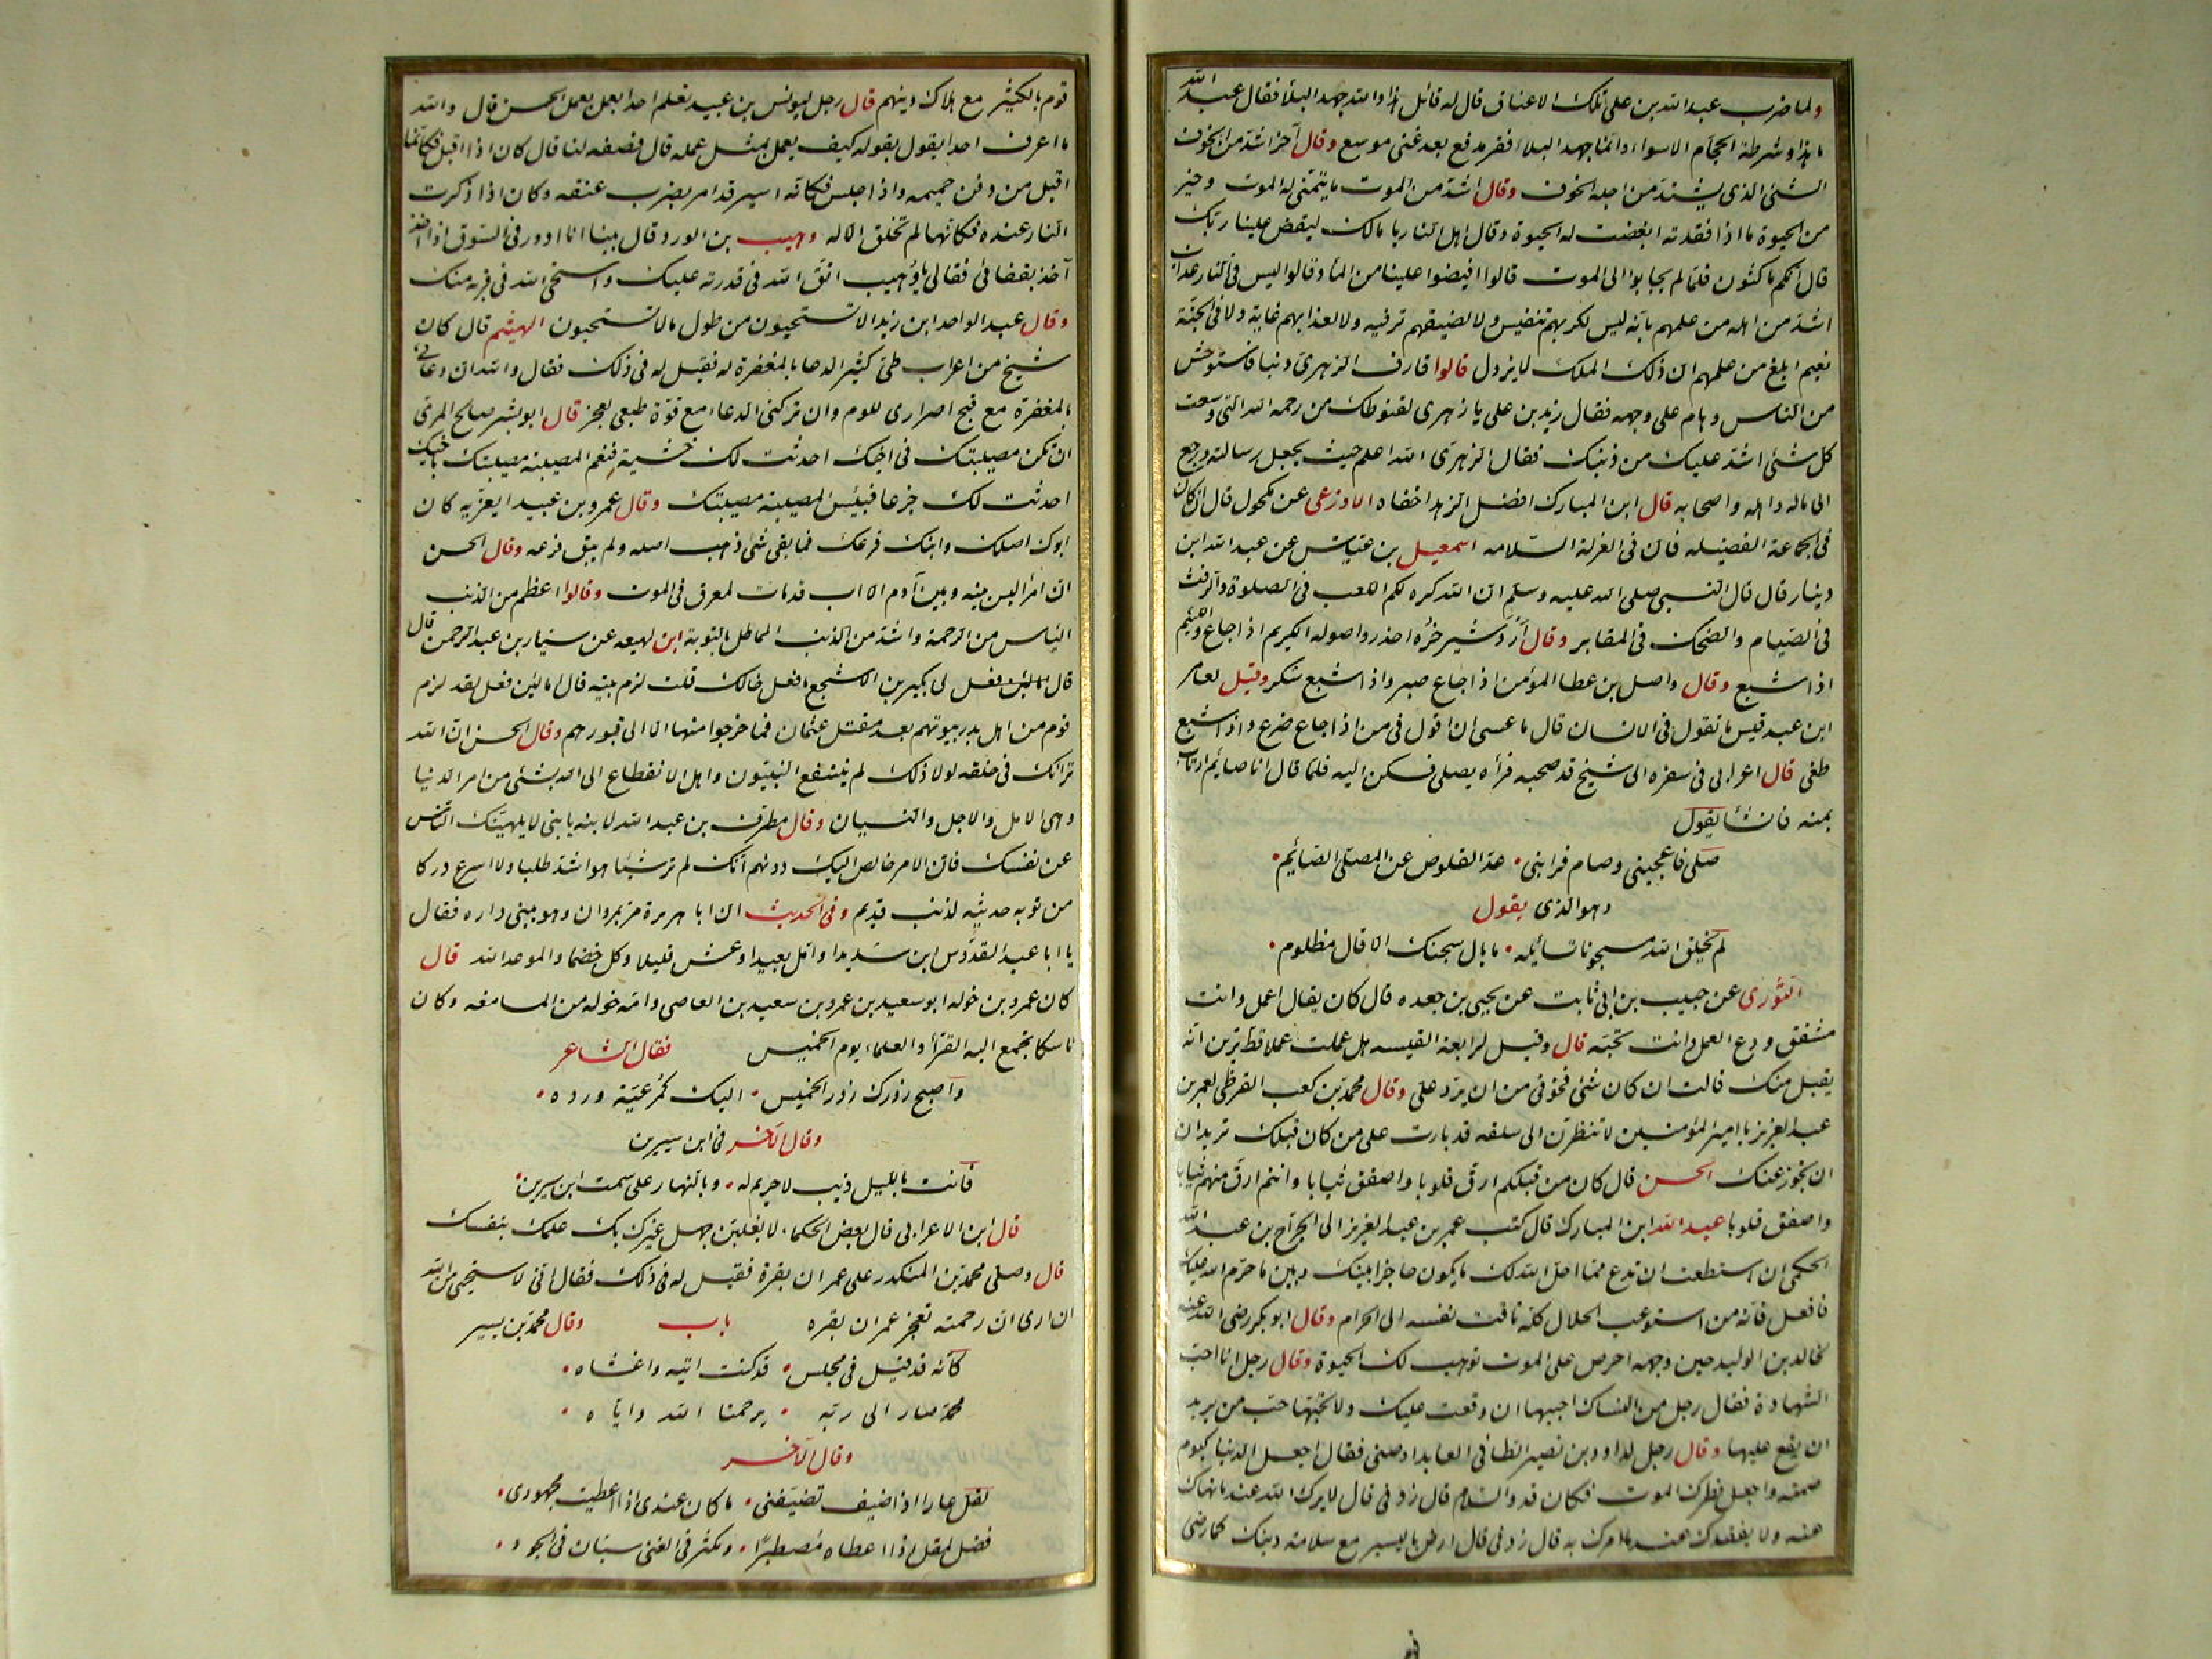 ولما ضرب عبد الله بن على تلك الاعناق قال له قائل هذا والله جهد البلأ فقال عبد الله
ما هذا وشرطة الحجام الا سواء وانما جهد البلاء فقر مدقع بعد غنى موسع وقال آخر اشد من الخوف
الشئ الذى يشتد من اجله الخوف وقال اشد من الموت ما يتمنى له الموت وخير
من الحيوة ما اذا فقدته ابغضت له الحيوة وقال اهل النار يا مالك ليقض علينا ربك
قال انكم ماكثون فلما لم يجابوا الى الموت قالوا افيضوا علينا من المأ وقالوا ليس فى النار عذاب
اشد من اهله من علمهم بانه ليس لكربهم تنفيس ولا لضيقهم ترفيه ولا لعذابهم غاية ولا فى الجنة
نعيم ابلغ من علمهم ان ذلك الملك لا يزول قالوا قارف الزهرى ذنبا فاستوحش
من الناس وهام على وجهه فقال زيد بن على يا زهرى لقنوطك من رحمه الله التى وسعت
كل شئ اشد عليك من ذنبك فقال الزهرى الله اعلم حيث يجعل رسالته ورجع
الى ماله واهله واصحابه قال ابن المبارك افضل الزهد اخفاه الاوزعى عن مكحول قال ان كان
فى الجماعة الفضيله فان فى العزلة السلامه اسمعيل بن عياش عن عبد الله ابن
دينار قال قال النبى صلى الله عليه وسلم ان الله كره لكم العبث فى الصلوة والرفث
فى الصيام والضحك فى المقابر وقال أردشير خره احذروا صوله الكريم اذا جاع واللئيم
اذا شبع وقال واصل بن عطا المؤمن اذا جاع صبر واذا شبع شكر وقيل لعامر
ابن عبد قيس ما تقول فى الانسان قال ما عسى ان اقول فى من اذا جاع ضرع واذا شبع
طغى قال اعرابى فى سفره الى شيخ قد صحبه فرأه يصلى فسكن اليه فلما قال انا صائم ارتاب
بمنه فانشأ يقول
صلى فاعجبنى وصام فرابنى • عد القلوص عن المصلى الصائم •
وهو الذى يقول
لم يخلق الله مسجونا تسائله • ما بال سجنك الا قال مظلوم •
الثورى عن حبيب بن ابى ثابت عن يحيى بن جعده قال كان يقال اعمل وانت
مشفق ودع العمل وانت تحبه قال وقيل لرابعه القيسه هل عملت عملا قط ترين انه
يقبل منك قالت ان كان شئ فخوفى من ان يرد على وقال محمد بن كعب القرظى لعمر بن
عبد العزيز يا امير المؤمنين لا تنظرن الى سلعه قد بارت على من كان قبلك تريد ان
ان تجوز عنك الحسن قال كان من قبلكم ارق قلوبا واصفق ثيابا وانتم ارق منهم ثيابا
واصفق قلوبا عبد الله ابن المبارك قال كتب عمر بن عبد العزيز الى الجراح بن عبد الله
الحكمى ان استطعت ان تدع مما احل الله لك ما يكون حاجزا بينك وبين ما حرم الله عليك
فافعل فانه من استوعب الحلال كله تاقت نفسه الى الحرام وقال ابو بكر رضى الله عنه
لخالد بن الوليد حين وجهه احرص على الموت توهب لك الحيوة وقال رجل انا احب
الشهادة فقال رجل من النساك احببها ان وقعت عليك ولا تحبها حب من يريد
ان يقع عليها وقال رجل لداود بن نصير الطائى العابد اوصنى فقال اجعل الدنيا كيوم
صمته واجعل فطرك الموت فكان قد والسلام قال زدنى قال لا يرك الله عند ما نهاك
عنه ولا يفقدك عند ما امرك به قال زدنى قال ارض باليسير مع سلامة دينك كما رضى
قوم بالكثير مع هلاك دينهم قال رجل ليونس بن عبيد تعلم احدا يعمل بعمل الحسن قال والله
ما اعرف احدا يقول بقوله كيف يعمل بمثل عمله قال فصفه لنا قال كان اذا اقبل فكانما
اقبل من دفن حميمه واذا جلس فكانه اسير قد امر بضرب عنقه وكان اذا ذكرت
النار عنده فكانها لم تخلق الا له وهيب بن الورد قال بينا انا ادور فى السوق اذا اخذ
آخذ بقفائى فقال لى يا وهيب اتق الله فى قدرته عليك واستحى الله فى قربه منك
وقال عبد الواحد ابن زيد الا تستحيون من طول ما لا تستحيون الهيثم قال كان
شيخ من اعراب طى كثير الدعا بالمغفرة له فقيل له فى ذلك فقال والله ان دعائى
بالمغفرة مع قبح اصرارى للوم وان تركنى الدعاء مع قوة طبعى لعجز قال ابو بشر صالح المرى
ان تكن مصيبتك فى اخيك احدثت لك خشية فنعم المصيبة مصيبتك باخيك
احدثت لك جزعا فبئس المصيبة مصيبتك وقال عمرو بن عبيد ايعزيه كان
ابوك اصلك وابنك فرعك فما بقى شئ ذهب اصله ولم يبق فرعه وقال الحسن
ان امرأ ليس بينه وبين آدم الا اب قد مات لمعرق فى الموت وقالوا اعظم من الذنب
الياس من الرحمة واشد من الذنب المماطل بالتوبة ابن لهيعه عن سيار بن عبد الرحمن قال
قال لى بكير بن الاشجع ما فعل خالك قلت لزم بيته قال اما لئن فعل لقد لزم
قوم من اهل بدر بيوتهم بعد مقتل عثمان فما خرجوا منها الا الى قبورهم وقال الحسن ان الله
ترانك فى خلقه لولا ذلك لم ينتفع النبيون واهل الانقطاع الى الله بشئ من امر الدنيا
وهى الامل والاجل والنسيان وقال مطرف بن عبد الله لابنه يا بنى لا يلهينك الناس
عن نفسك فان الامر خالص اليك دونهم انك لم تر شيئا هو اشد طلبا ولا اسرع دركا
من توبه حديثه لذنب قديم وفى الحديث ان ابا هريرة مر بمروان وهو يبنى داره فقال
يا ابا عبد القدوس ابن شديدا وامل بعيدا وعش قليلا وكل خضما والموعد الله قال
كان عمرو بن خوله ابو سعيد بن عمرو بن سعيد بن العاصى وامه خوله من المسامعه وكان
ناسكا يجمع اليه القرأ والعلماء يوم الخميس فقال الشاعر
واصبح زورك زور الخميس • اليك كمرعية ورده •
وقال آخر فى ابن سيرين
فانت بالليل ذيب لا حريم له • وبالنهار على سمت ابن سيرين •
قال ابن الاعرابى قال بعض الحكماء لا يغلبن جهل غيرك بك علمك بنفسك
قال وصلى محمد بن المنكدر على عمران بقرة فقيل له فى ذلك فقال انى لاستحيى من الله
ان ارى ان رحمته تعجز عن عمران بقره باب وقال محمد بن يسير
كانه قد قيل فى مجلس • قد كنت اتيه واغشاه •
محمد صار الى ربه • يرحمنا الله واياه •
وقال آخر
لقل عارا اذا ضيف تضيفنى • ما كان عندى اذا اعطيت مجهودى •
فضل المقل اذا اعطاه مصطبرا • ومكثر فى الغنى سيان فى الجود •